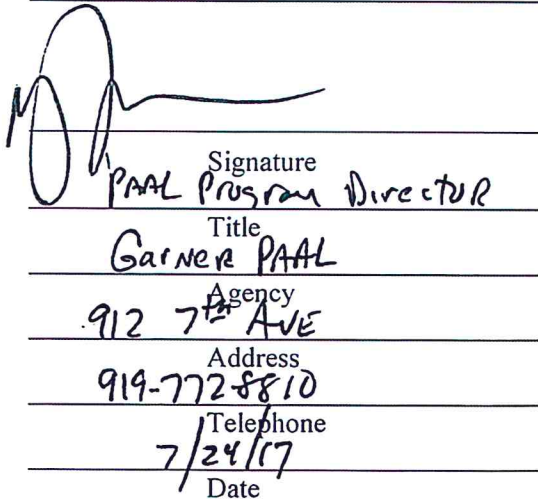 Signature
PAAL Program Director
Title
Garner PAAL
Agency
912 7th AVE
Address
919-772-8810
Telephone
7/24/17
Date